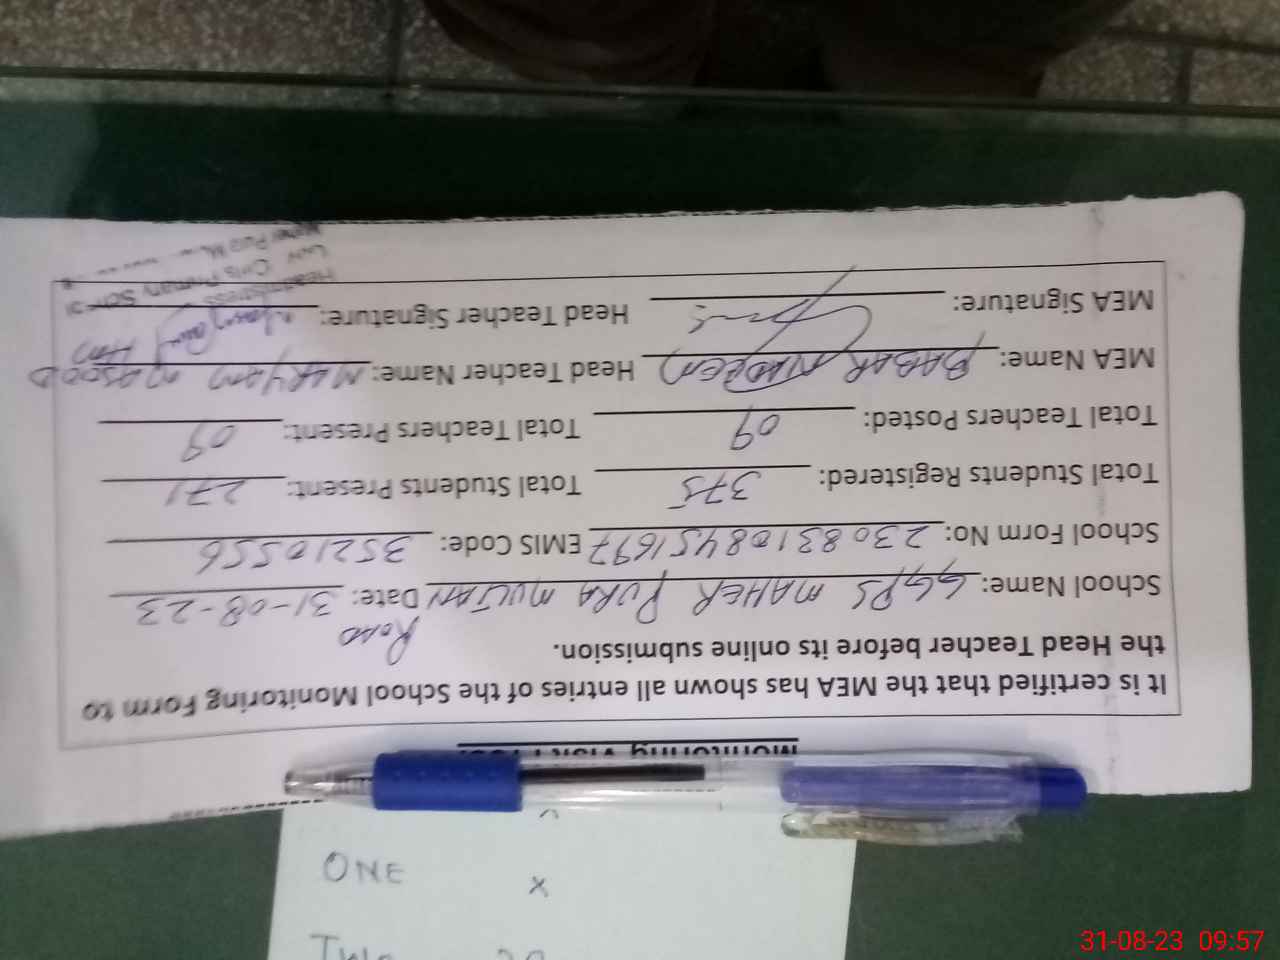 Monitoring Visit
It is certified that the MEA has shown all entries of the School Monitoring Form to
the Head Teacher before its online submission.
School Name: GGPS MAHER PURA MULTAN ROAD Date: 31-08-23
School Form No: 23083108451697 EMIS Code: 35210556
Total Students Registered: 375 Total Students Present: 271
Total Teachers Posted: 09 Total Teachers Present: 09
MEA Name: BABAR NADEEM Head Teacher Name: MARYAM MASOOD
MEA Signature: Head Teacher Signature:
Headmistress
Girls Primary School
Maher Pura
ONE x
TWO
31-08-23 09:57